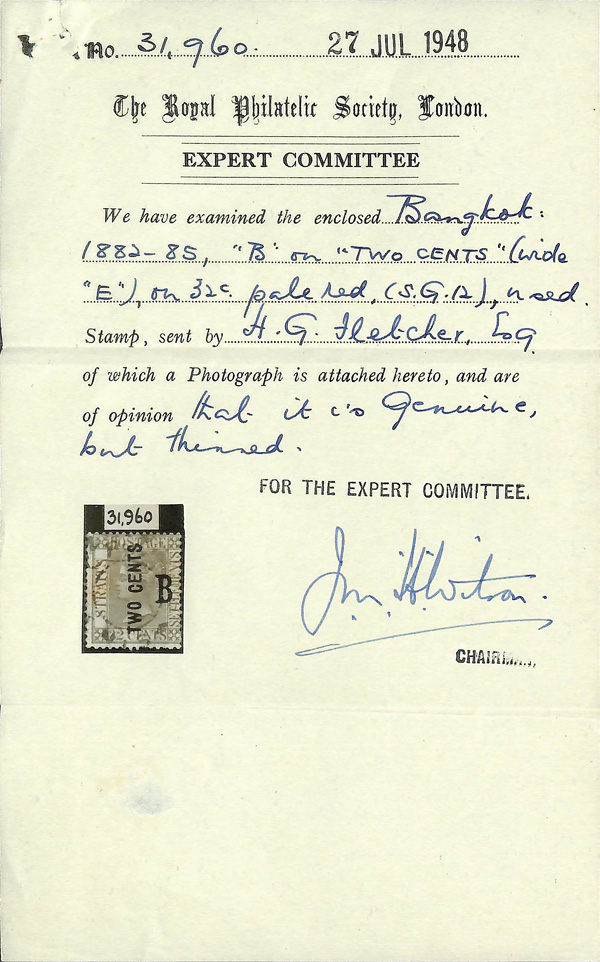 No. 31,960. 27 JUL 1948
The Royal Philatelic Society, London.
EXPERT COMMITTEE
We have examined the enclosed Bangkok:
1882-85, "B" on "TWO CENTS" (wide
"E"), on 32c. pale red, (S.G.12), used.
Stamp, sent by H. G. Fletcher, Esq
of which a Photograph is attached hereto, and are
of opinion that it is Genuine,
but thinned.
FOR THE EXPERT COMMITTEE.
31,960
POSTAGE
STRAITS
TWO CENTS
B
SETTLEMENTS
CENTS
CHAIRMAN.